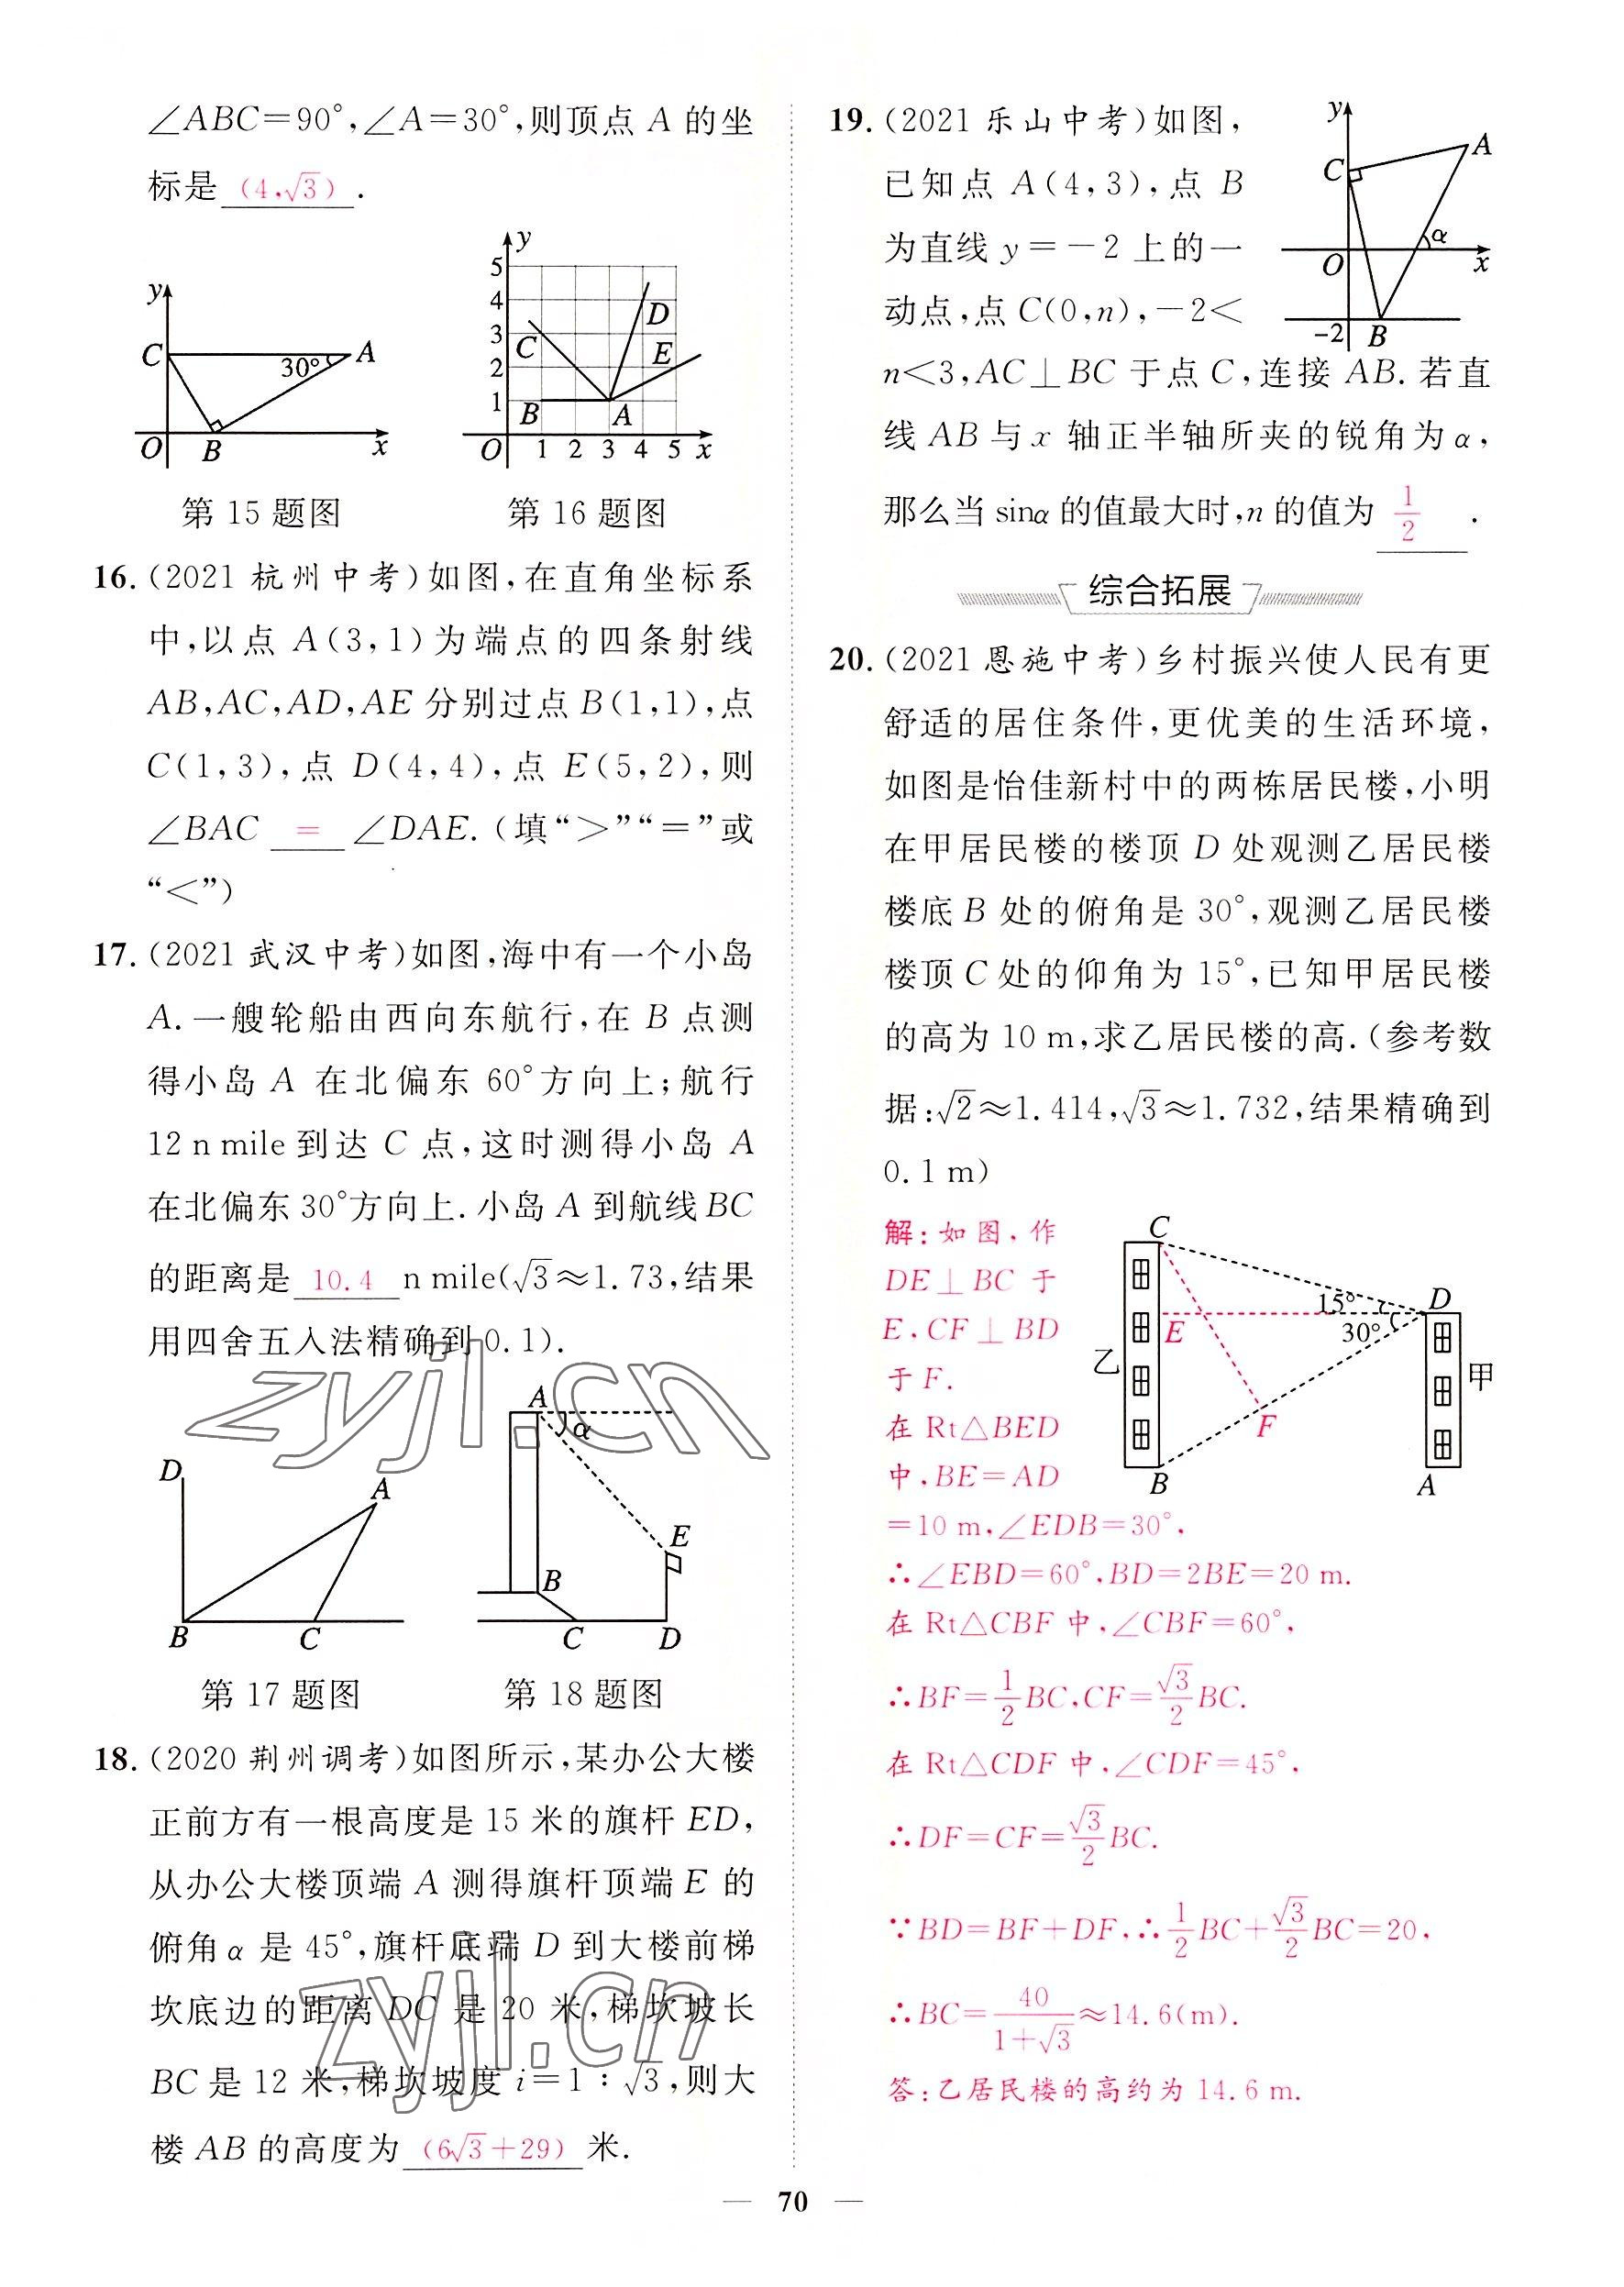 ∠ABC=90°,∠A=30°,则顶点 A 的坐
标是 (4,√3) .
y
C
A
30°
O
B
x
第 15 题图
y
5
4
3
2
1
C
D
E
B
A
O
1 2 3 4 5 x
第 16 题图
16.(2021 杭州中考)如图,在直角坐标系
中,以点 A(3,1)为端点的四条射线
AB,AC,AD,AE 分别过点 B(1,1),点
C(1,3),点 D(4,4),点 E(5,2),则
∠BAC = ∠DAE.(填“>”“=”或
“<”)
17.(2021 武汉中考)如图,海中有一个小岛
A.一艘轮船由西向东航行,在 B 点测
得小岛 A 在北偏东 60°方向上;航行
12 n mile 到达 C 点,这时测得小岛 A
在北偏东 30°方向上.小岛 A 到航线 BC
的距离是 10.4 n mile(√3≈1.73,结果
用四舍五入法精确到 0.1).
zyjl.cn
D
A
B
C
第 17 题图
A
α
E
B
C
D
第 18 题图
18.(2020 荆州调考)如图所示,某办公大楼
正前方有一根高度是 15 米的旗杆 ED,
从办公大楼顶端 A 测得旗杆顶端 E 的
俯角 α 是 45°,旗杆底端 D 到大楼前梯
坎底边的距离 DC 是 20 米,梯坎坡长
BC 是 12 米,梯坎坡度 i=1∶√3,则大
楼 AB 的高度为 (6√3+29) 米.
zyjl.cn
19.(2021 乐山中考)如图,
已知点 A(4,3),点 B
为直线 y=-2 上的一
动点,点 C(0,n),-2<
n<3,AC⊥BC 于点 C,连接 AB.若直
线 AB 与 x 轴正半轴所夹的锐角为 α,
那么当 sinα 的值最大时,n 的值为 1/2 .
y
A
C
α
O
x
-2
B
综合拓展
20.(2021 恩施中考)乡村振兴使人民有更
舒适的居住条件,更优美的生活环境,
如图是怡佳新村中的两栋居民楼,小明
在甲居民楼的楼顶 D 处观测乙居民楼
楼底 B 处的俯角是 30°,观测乙居民楼
楼顶 C 处的仰角为 15°,已知甲居民楼
的高为 10 m,求乙居民楼的高.(参考数
据:√2≈1.414,√3≈1.732,结果精确到
0.1 m)
解:如图,作
DE⊥BC 于
E,CF⊥BD
于 F.
在 Rt△BED
中,BE=AD
=10 m,∠EDB=30°,
∴∠EBD=60°,BD=2BE=20 m.
在 Rt△CBF 中,∠CBF=60°,
∴BF=1/2 BC,CF=√3/2 BC.
在 Rt△CDF 中,∠CDF=45°,
∴DF=CF=√3/2 BC.
∵BD=BF+DF,∴1/2 BC+√3/2 BC=20,
∴BC=40/(1+√3)≈14.6(m).
答:乙居民楼的高约为 14.6 m.
C
15°
D
E
30°
乙
甲
F
B
A
70